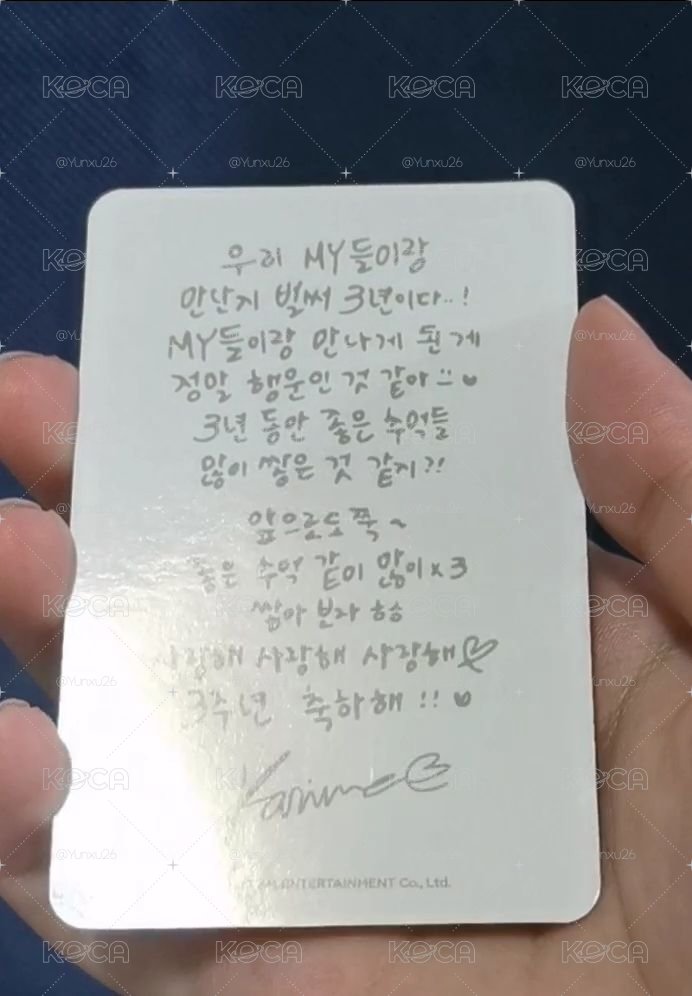 우리 MY들이랑
만난지 벌써 3년이다..!
MY들이랑 만나게 된 게
정말 행운인 것 같아 ♥
3년 동안 좋은 추억들
많이 쌓은 것 같지?!
앞으로도 쭉~
좋은 추억 같이 많이x3
쌓아 보자 ㅎㅎ
사랑해 사랑해 사랑해♡
3주년 축하해!! ♥
Karina
ENTERTAINMENT Co., Ltd.
KOCA
@Yunxu26